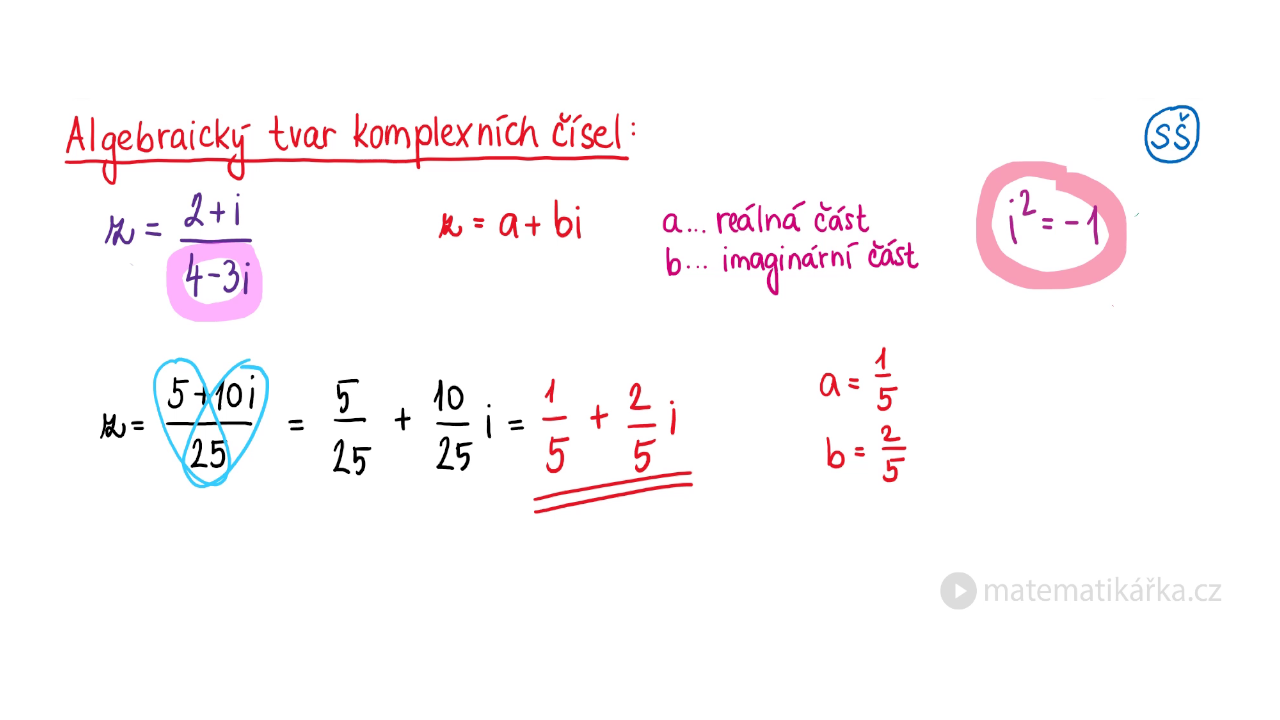 Algebraický tvar komplexních čísel:
SŠ
z = (2+i)/(4-3i)
z = a + bi
a... reálná část
b... imaginární část
i² = -1
z = (5+10i)/25 = 5/25 + 10/25 i = 1/5 + 2/5 i
a = 1/5
b = 2/5
matematikářka.cz